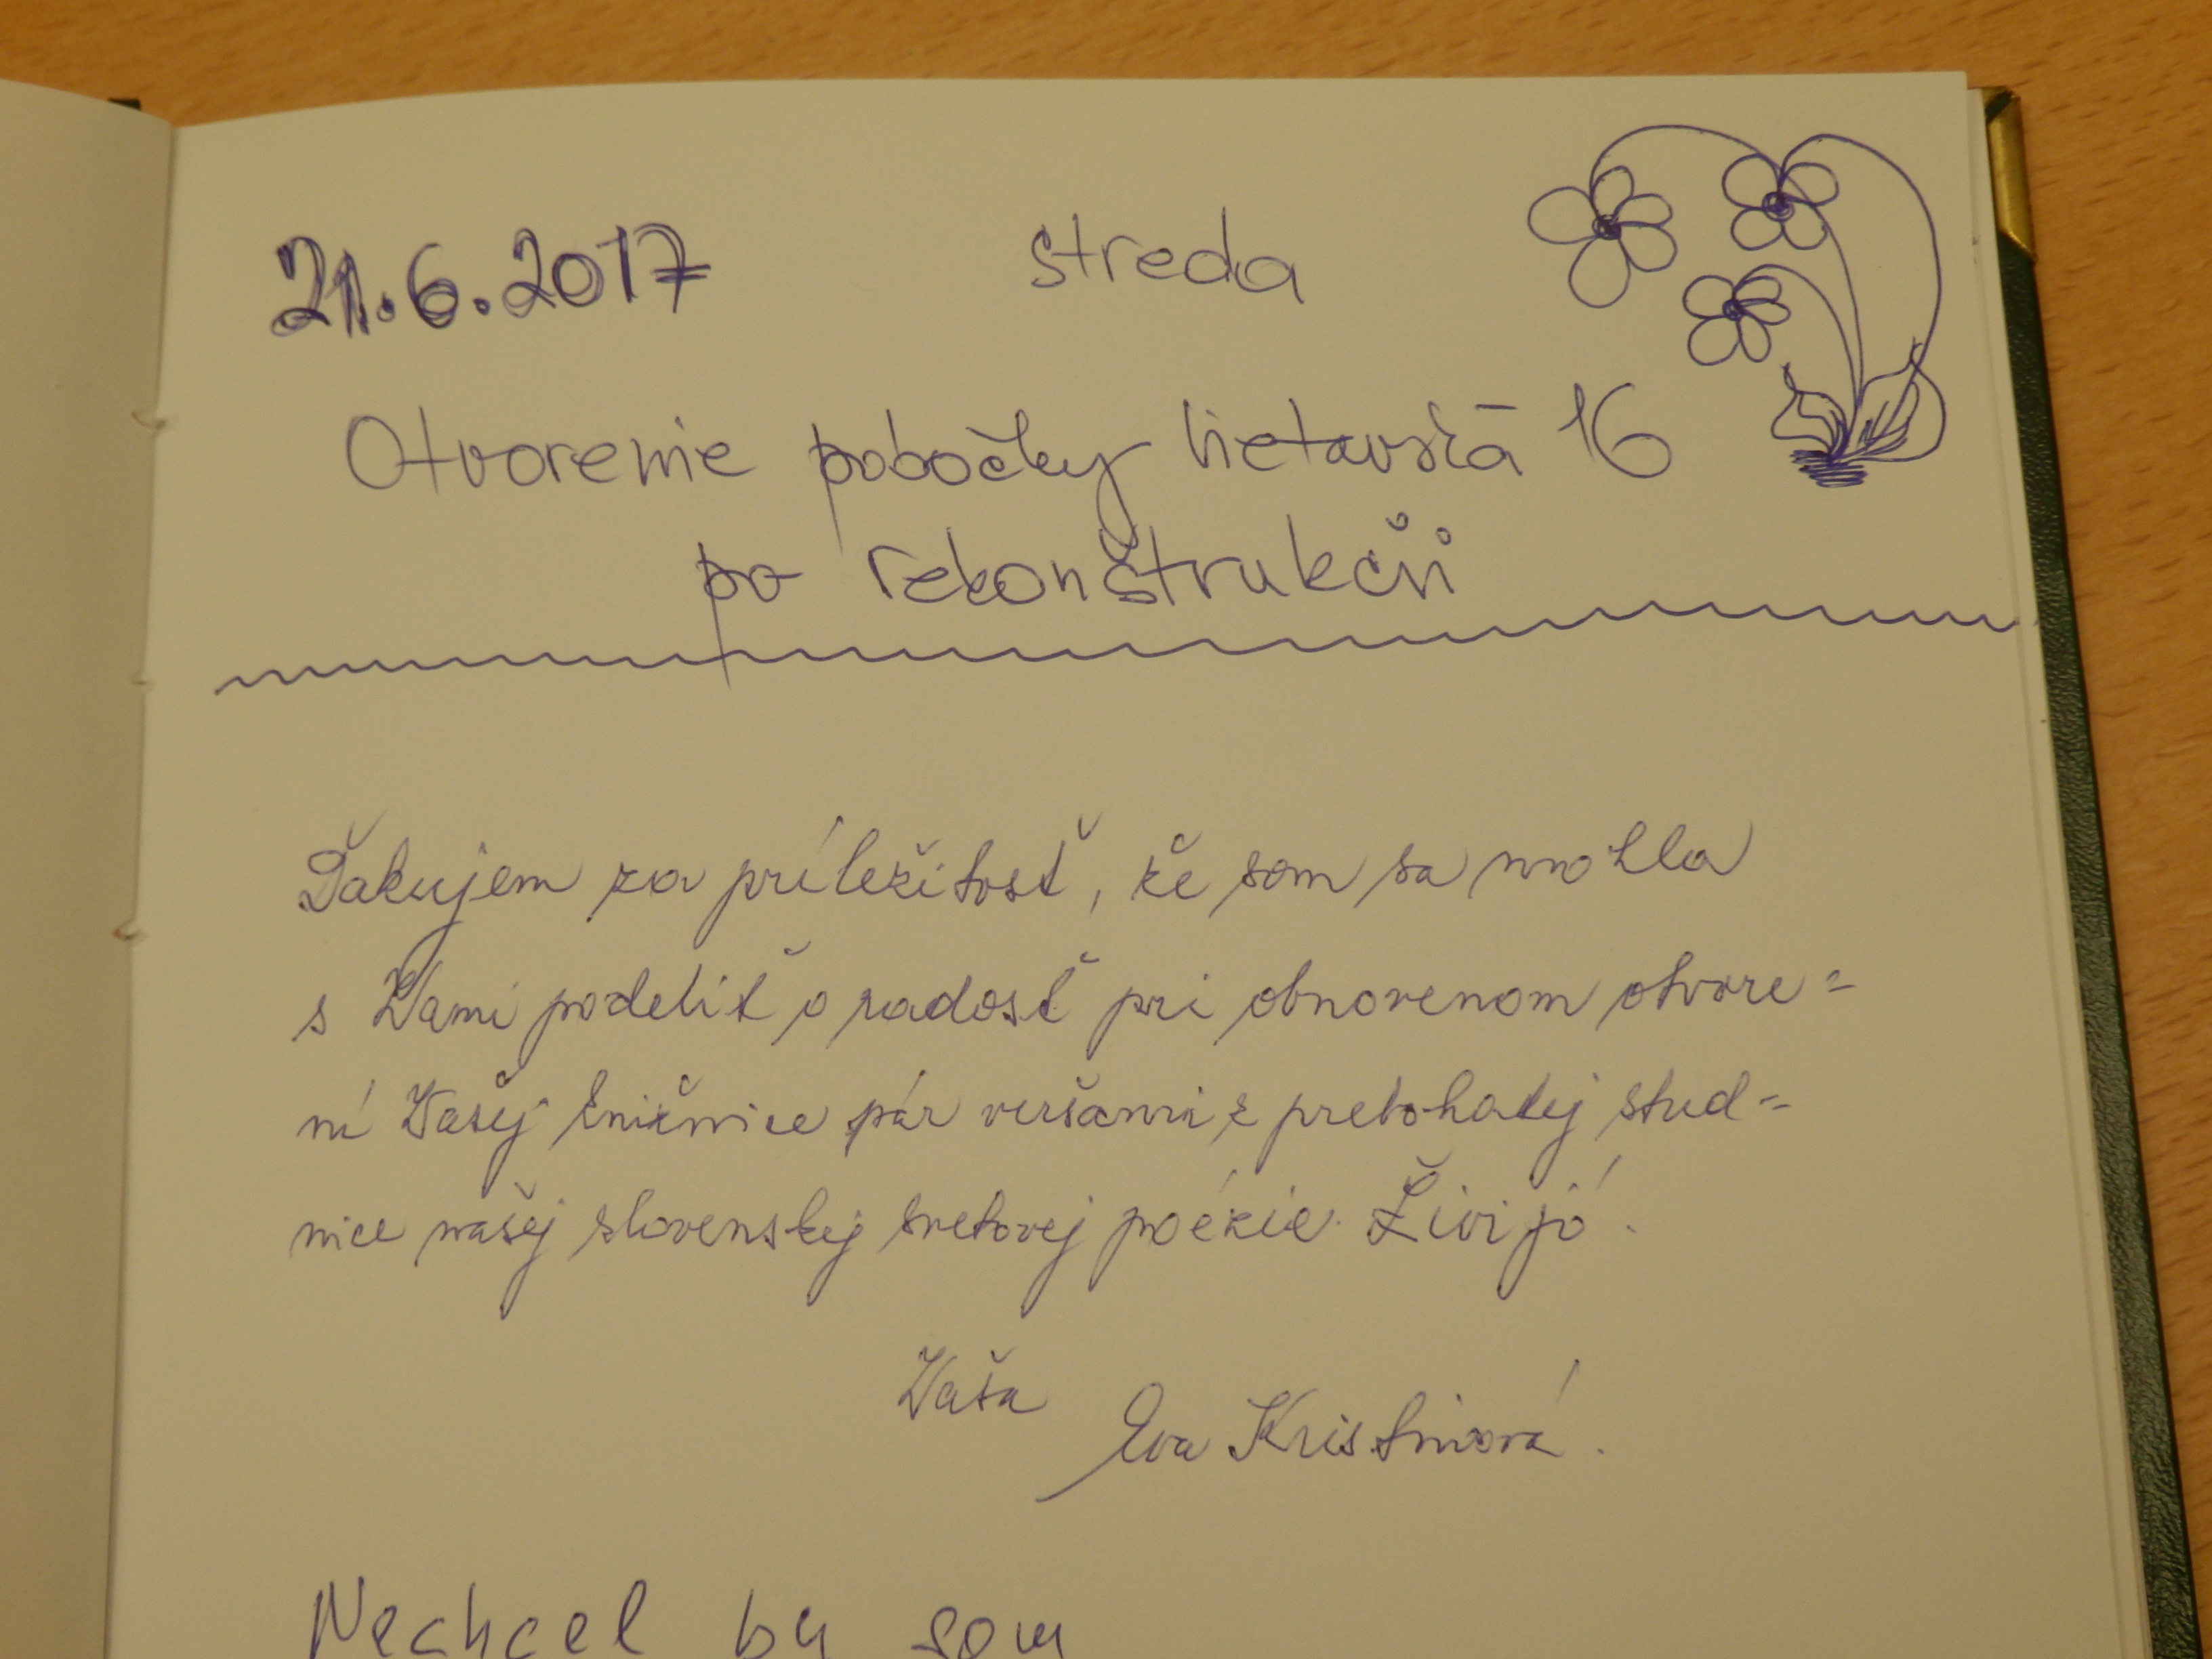 21.6.2017 streda
Otvorenie pobočky Lietavská 16
po rekonštrukčii
Ďakujem za príležitosť, že som sa mohla
s Vami podeliť o radosť pri obnovenom otvore=
ní Vašej knižnice pár veršami z prebohatej stud=
nice našej slovenskej svetovej poézie. Živijó.
Vaša
Eva Kristinová.
Nechcel by som